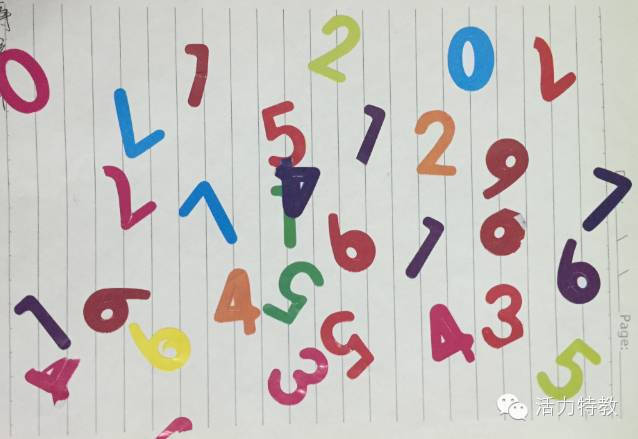 0 1 2 0
7 5 1 2 9
7 4 7
1 6 1 6 6
1 6 4 5 4 3
4 6 3 5 5
Page:
活力特教